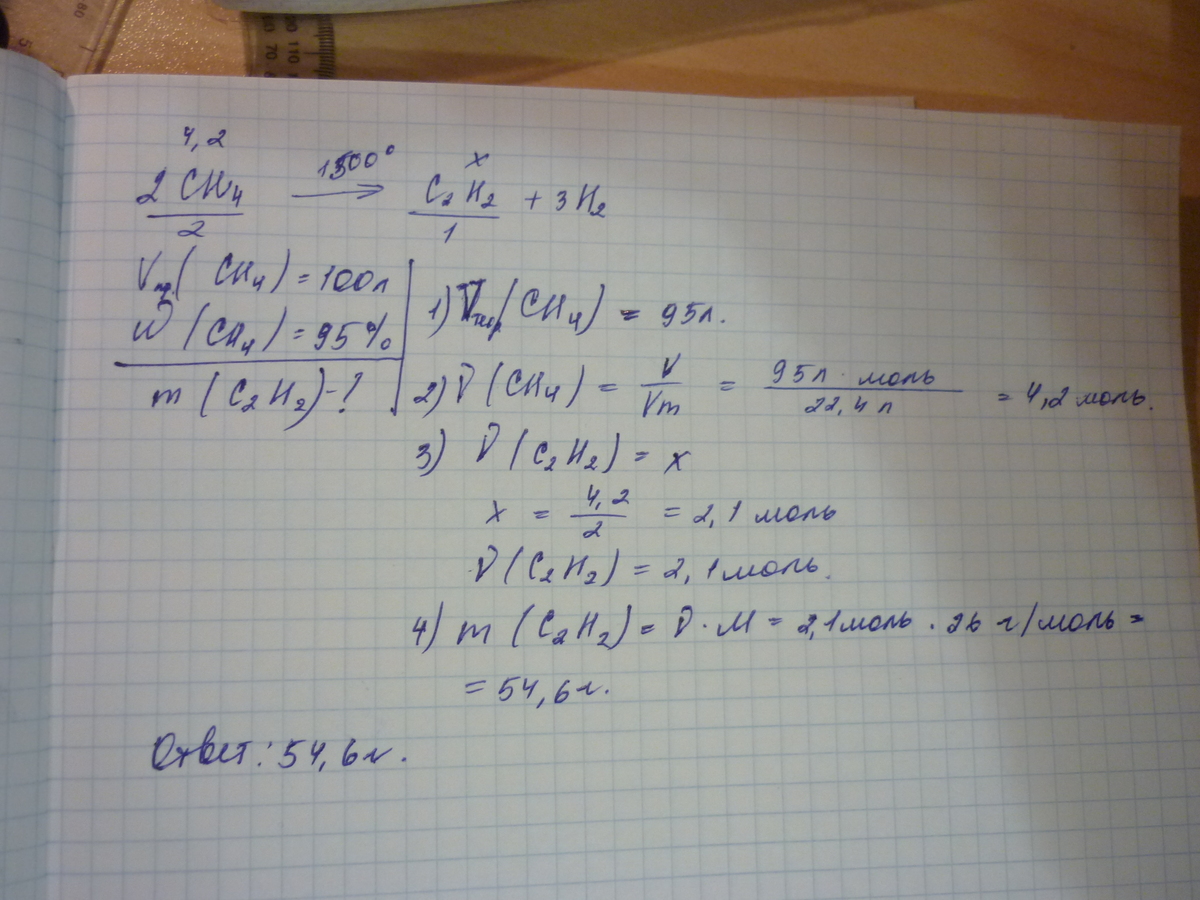 4,2
1500° x
2CH₄ → C₂H₂ + 3H₂
2 1
Vпр.(CH₄) = 100л
W (CH₄) = 95%
m (C₂H₂) - ?
1) Vтеор(CH₄) = 95л.
2) ν(CH₄) = V/Vm = 95л · моль/22,4 л = 4,2 моль.
3) ν(C₂H₂) = x
x = 4,2/2 = 2,1 моль
ν(C₂H₂) = 2,1 моль.
4) m (C₂H₂) = ν · M = 2,1 моль · 26 г/моль =
= 54,6 г.
Ответ: 54,6 г.